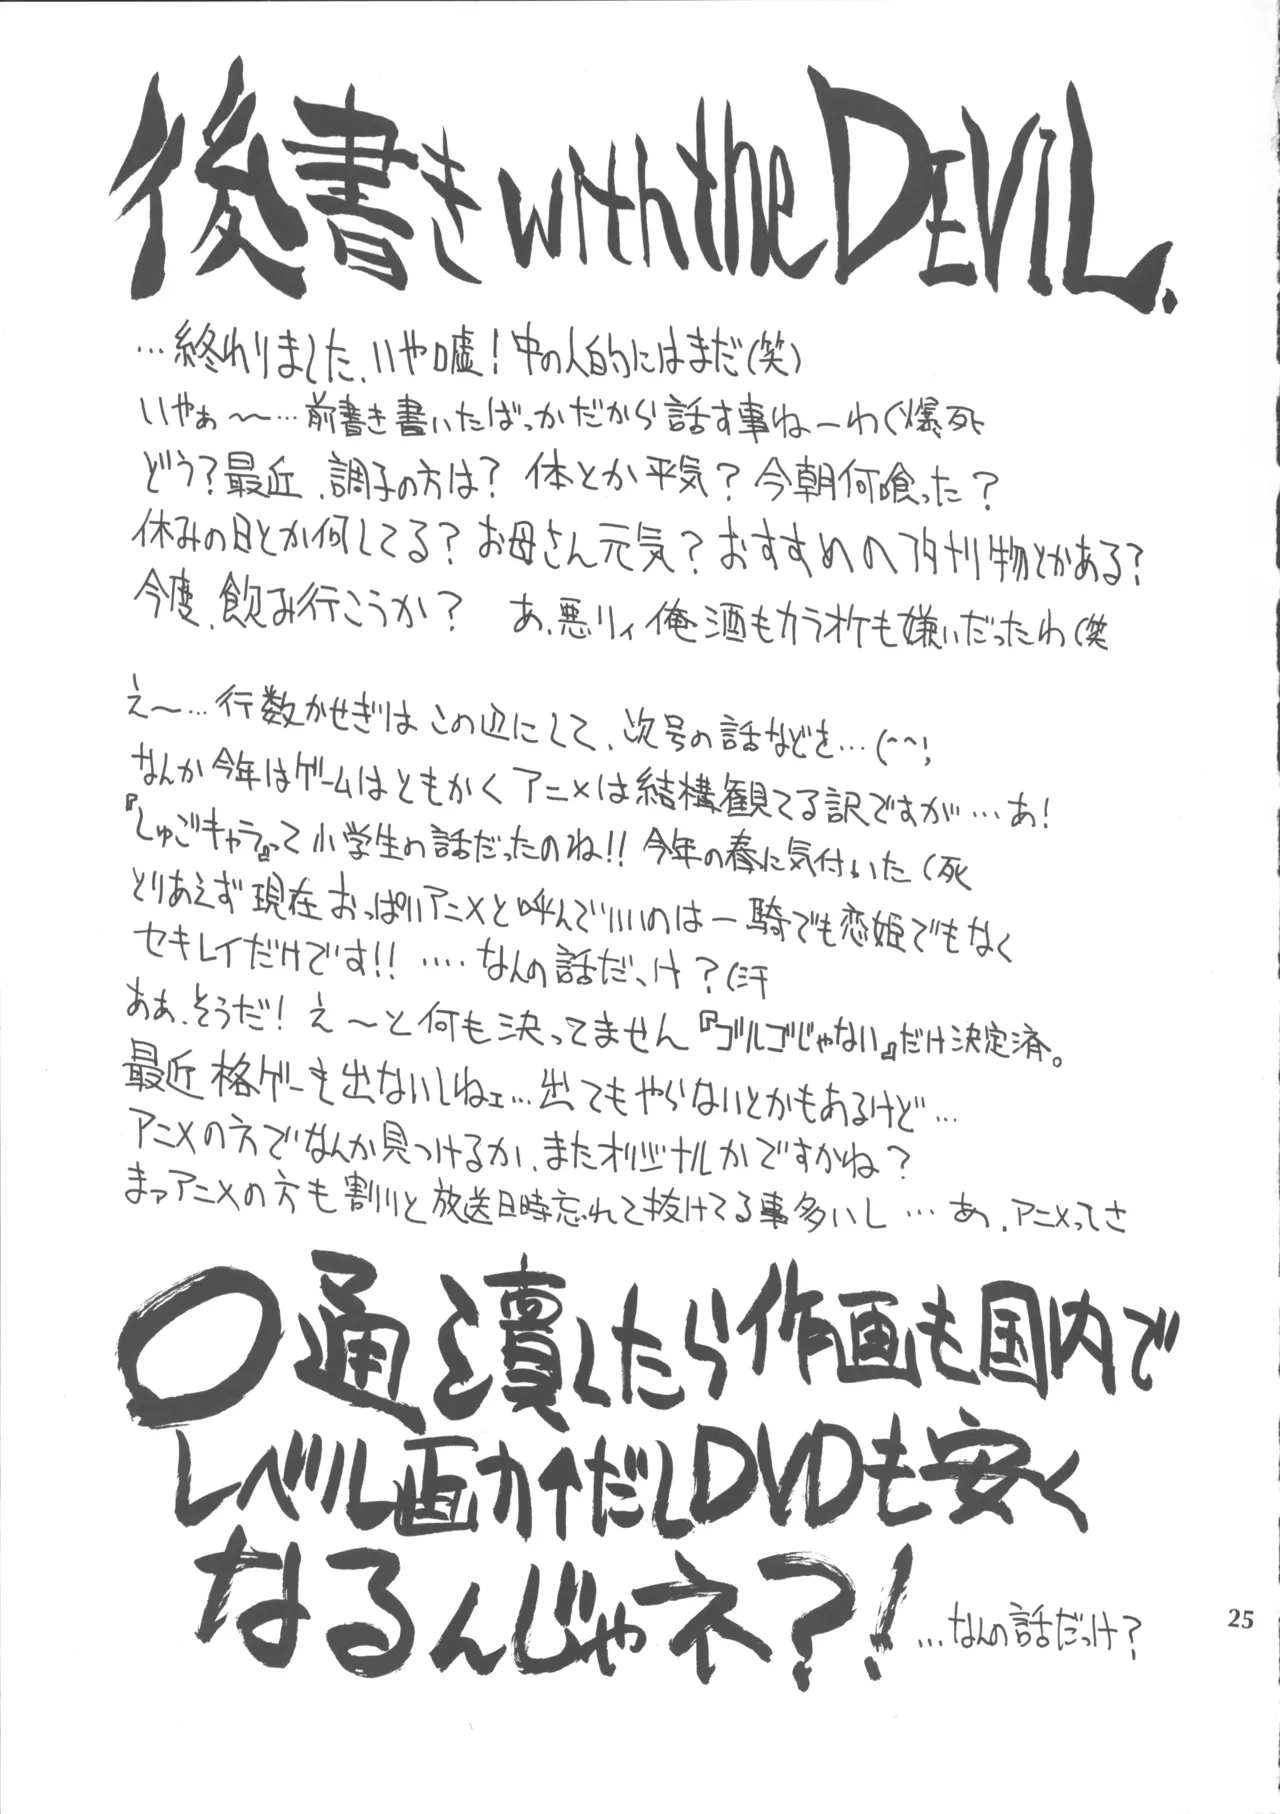 後書きwith the DEViL.
…終わりました、いや嘘！中の人的にはまだ(笑)
いやぁ～～…前書き書いたばっかだから話す事ねーわ(爆死
どう？最近、調子の方は？体とか平気？今朝何喰った？
休みの日とか何してる？お母さん元気？おすすめのフタナリ物とかある？
今度、飲み行こうか？あ、悪リィ俺酒もカラオケも嫌いだったわ(笑
え～…行数かせぎはこの辺にして、次号の話などを…(^^;
なんか今年はゲームはともかくアニメは結構観てる訳ですが…あ！
『しゅごキャラ』って小学生の話だったのね!!今年の春に気付いた(死
とりあえず現在おっぱいアニメと呼んでいいのは一騎でも恋姫でもなく
セキレイだけです!!‥‥なんの話だっけ？(汗
ああ、そうだ！え～と何も決ってません『ゴルゴじゃない』だけ決定済。
最近格ゲーも出ないしねェ…出てもやらないとかもあるけど…
アニメの方でなんか見つけるか、またオリジナルかですかね？
まァアニメの方も割りと放送日時忘れて抜けてる事多いし…あ、アニメってさ
〇通とか潰したら作画も国内で
レベル画力↑だしDVDも安く
なるんじゃネ？！
…なんの話だっけ？
25